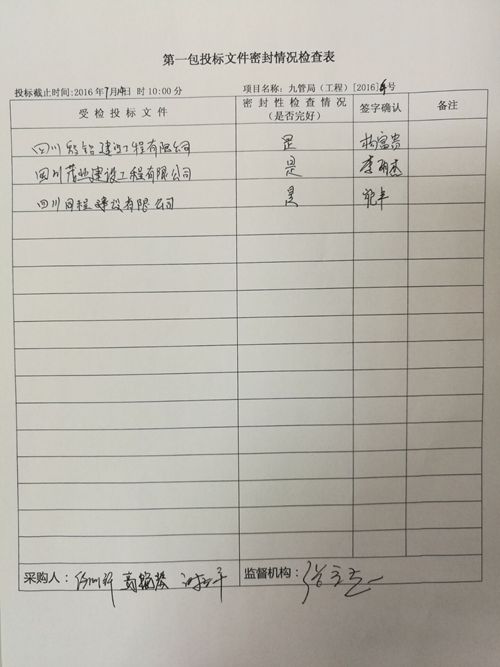 第一包投标文件密封情况检查表
投标截止时间:2016年7月14日 时10:00分 项目名称:九管局(工程)[2016]4号
受检投标文件 密封性检查情况(是否完好) 签字确认 备注
四川 建设工程有限公司 是 杨富贵
四川茂业建设工程有限公司 是 李
四川同程建设有限公司 是
采购人: 监督机构: